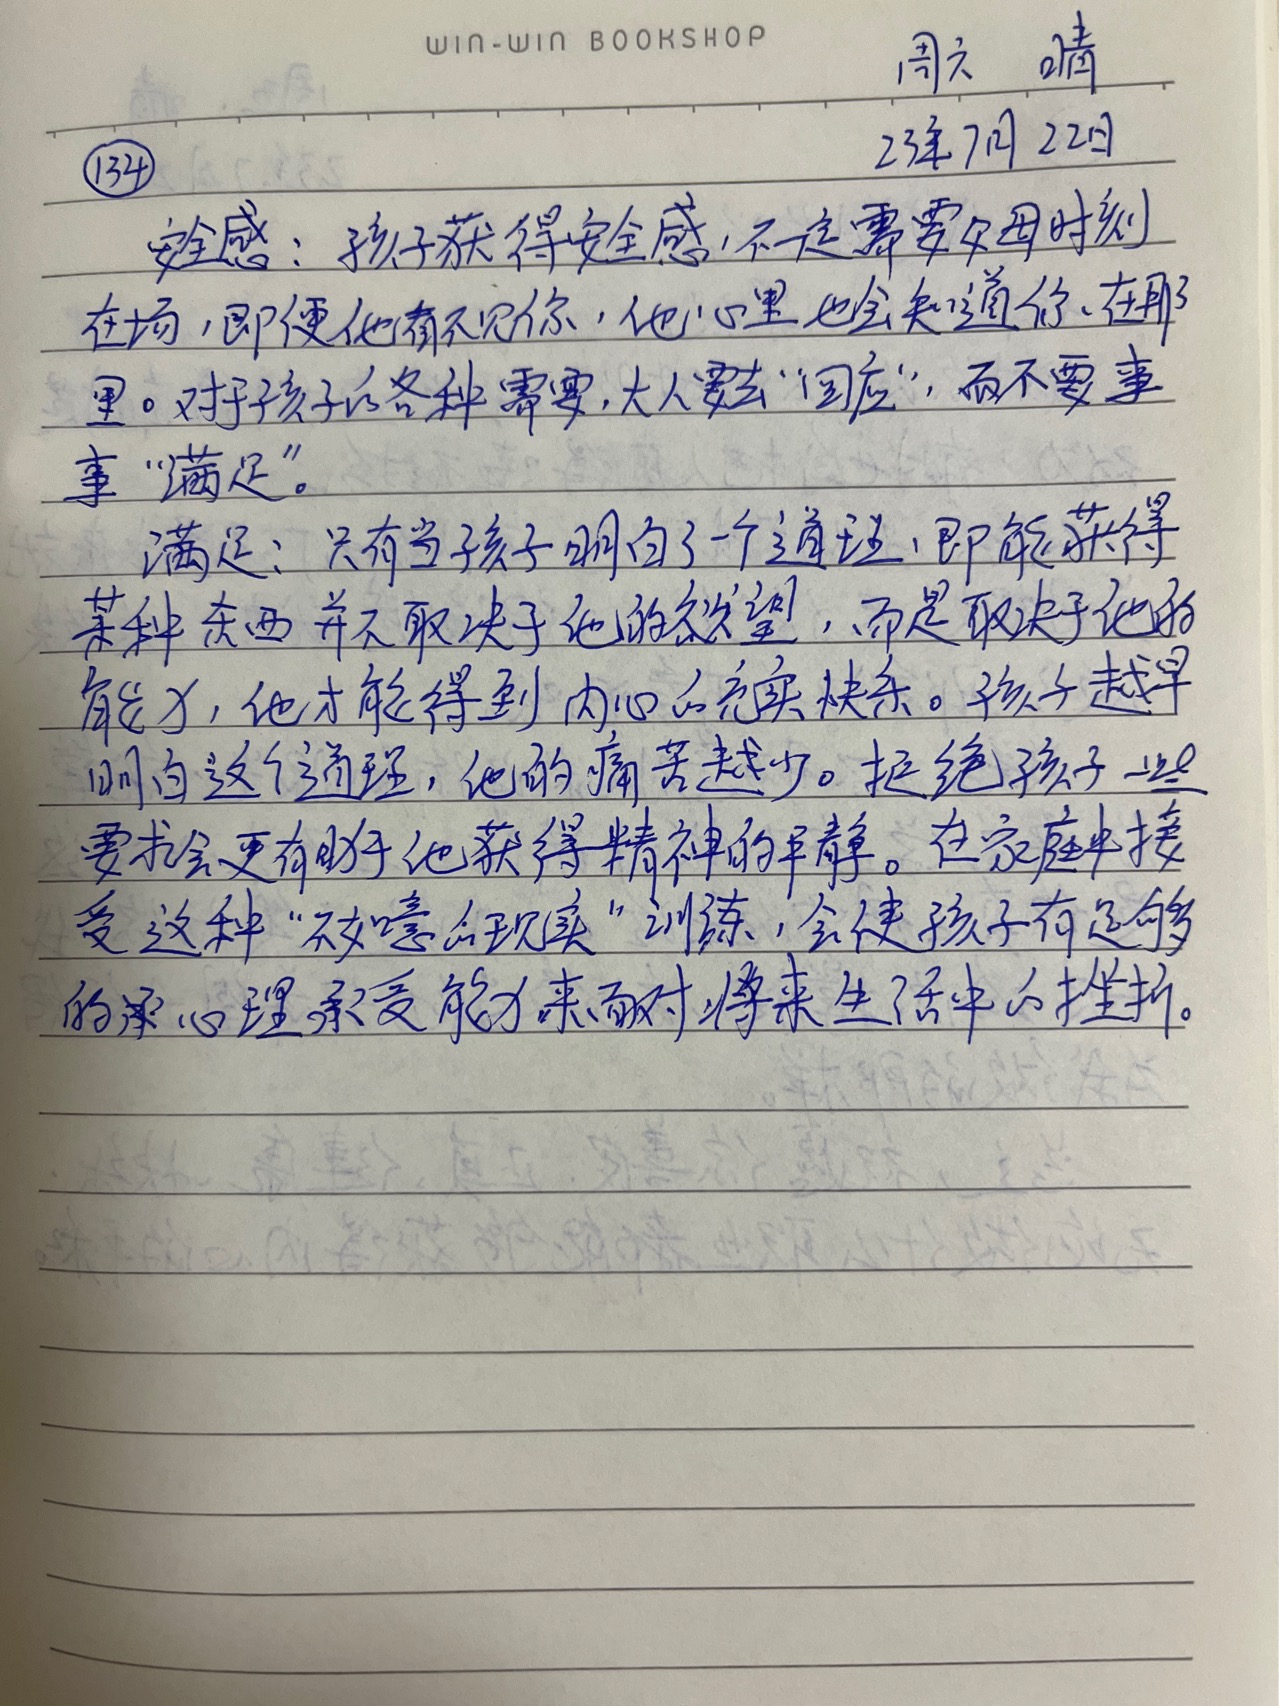 WIN-WIN BOOKSHOP
周六 晴
23年7月22日
134
安全感：孩子获得安全感，不一定需要父母时刻
在场，即便他看不见你，他心里也会知道你、在那
里。对于孩子的各种需要，大人要去“回应”，而不要事
事“满足”。
满足：只有当孩子明白了一个道理，即能获得
某种东西并不取决于他的欲望，而是取决于他的
能力，他才能得到内心的充实快乐。孩子越早
明白这个道理，他的痛苦越少。拒绝孩子一些
要求会更有助于他获得精神的平静。在家庭中接
受这种“不如意的现实”训练，会使孩子有足够
的承心理承受能力来面对将来生活中的挫折。